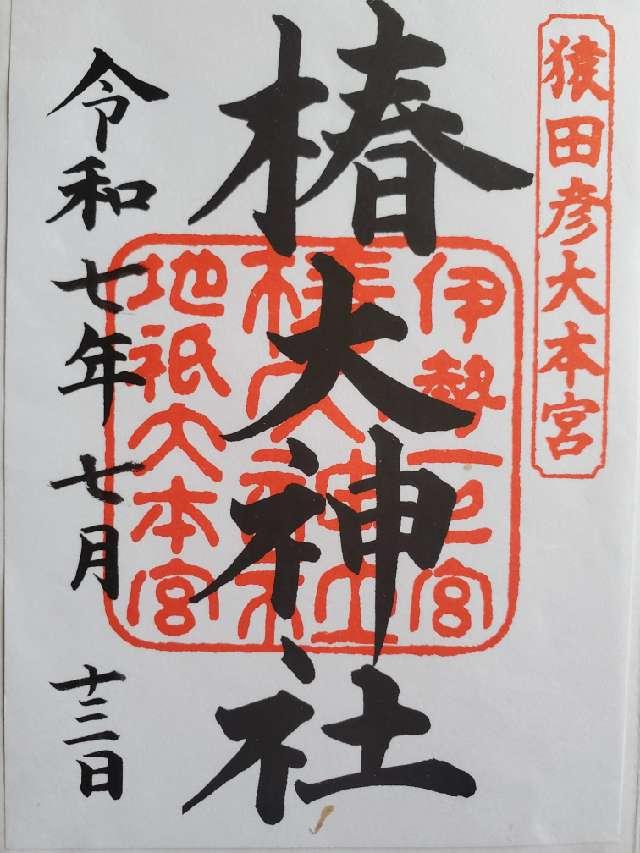 猿田彦大本宮
椿大神社
伊勢一之宮
椿大神社
地祇大本宮
令和七年七月十三日